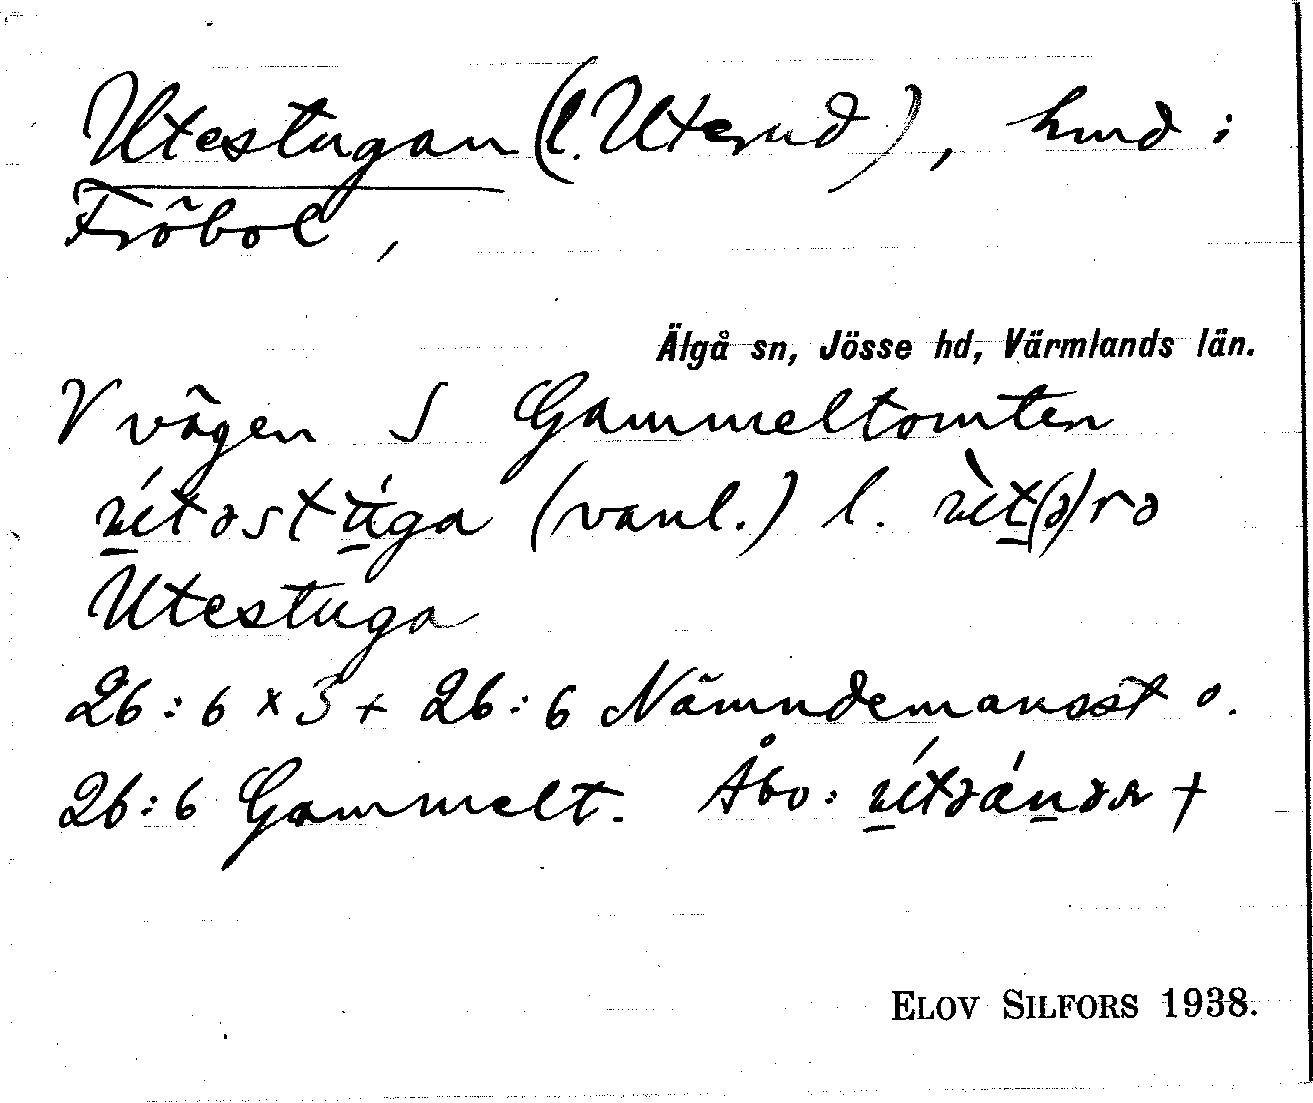 Utestugan (l. Uterud), hmd i
Fröbol,
Älgå sn, Jösse hd, Värmlands län.
V vägen S Gammeltomten
ú̱təstú̱ga (vanl.) l. ùṯ(ə)rə
Utestuga
26:6 x 3 + 26:6 Nämndemansst o.
26:6 Gammelt. Åbo: ú̱təánəɴ +
ELOV SILFORS 1938.